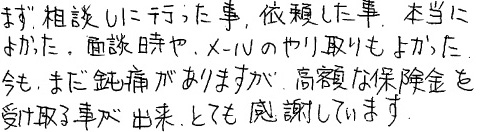 まず、相談しに行った事、依頼した事、本当に
よかった。面談時や、メールのやり取りもよかった。
今も、まだ鈍痛がありますが、高額な保険金を
受け取る事が出来、とても感謝しています。